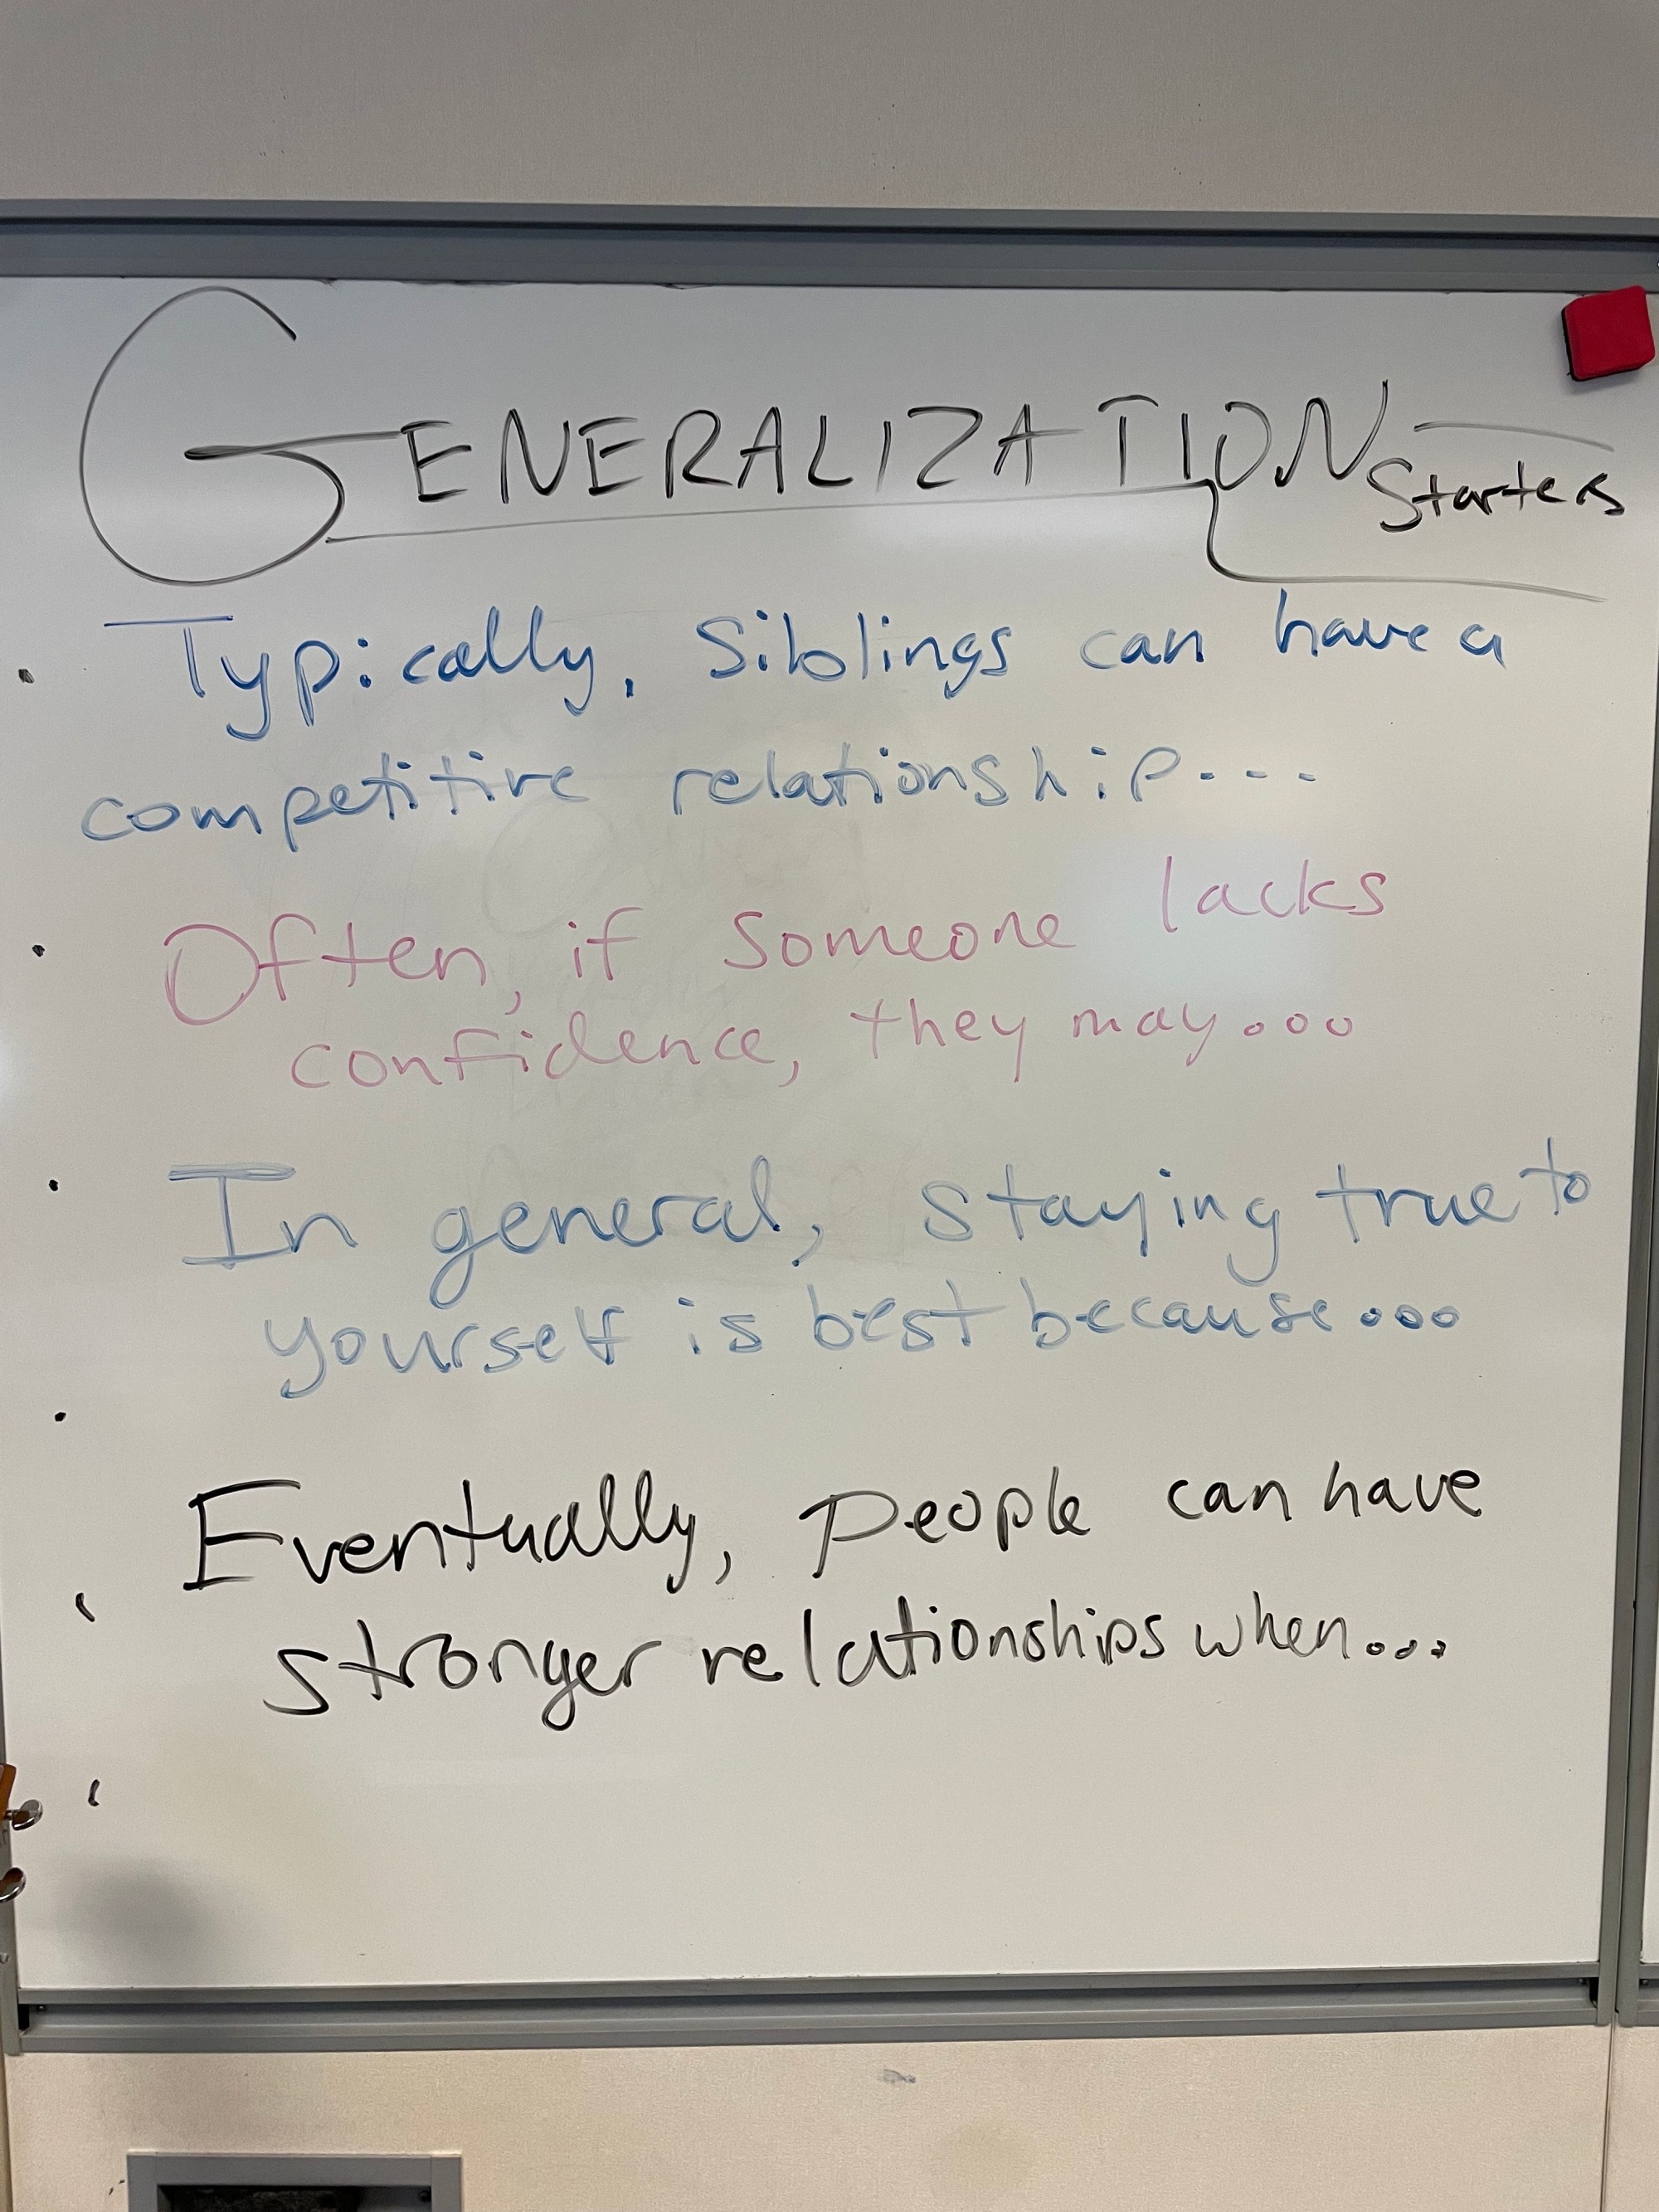 GENERALIZATION Starters
Typically, Siblings can have a
competitive relationship....
Often, if someone lacks
confidence, they may...
In general, staying true to
yourself is best because...
Eventually, people can have
stronger relationships when...